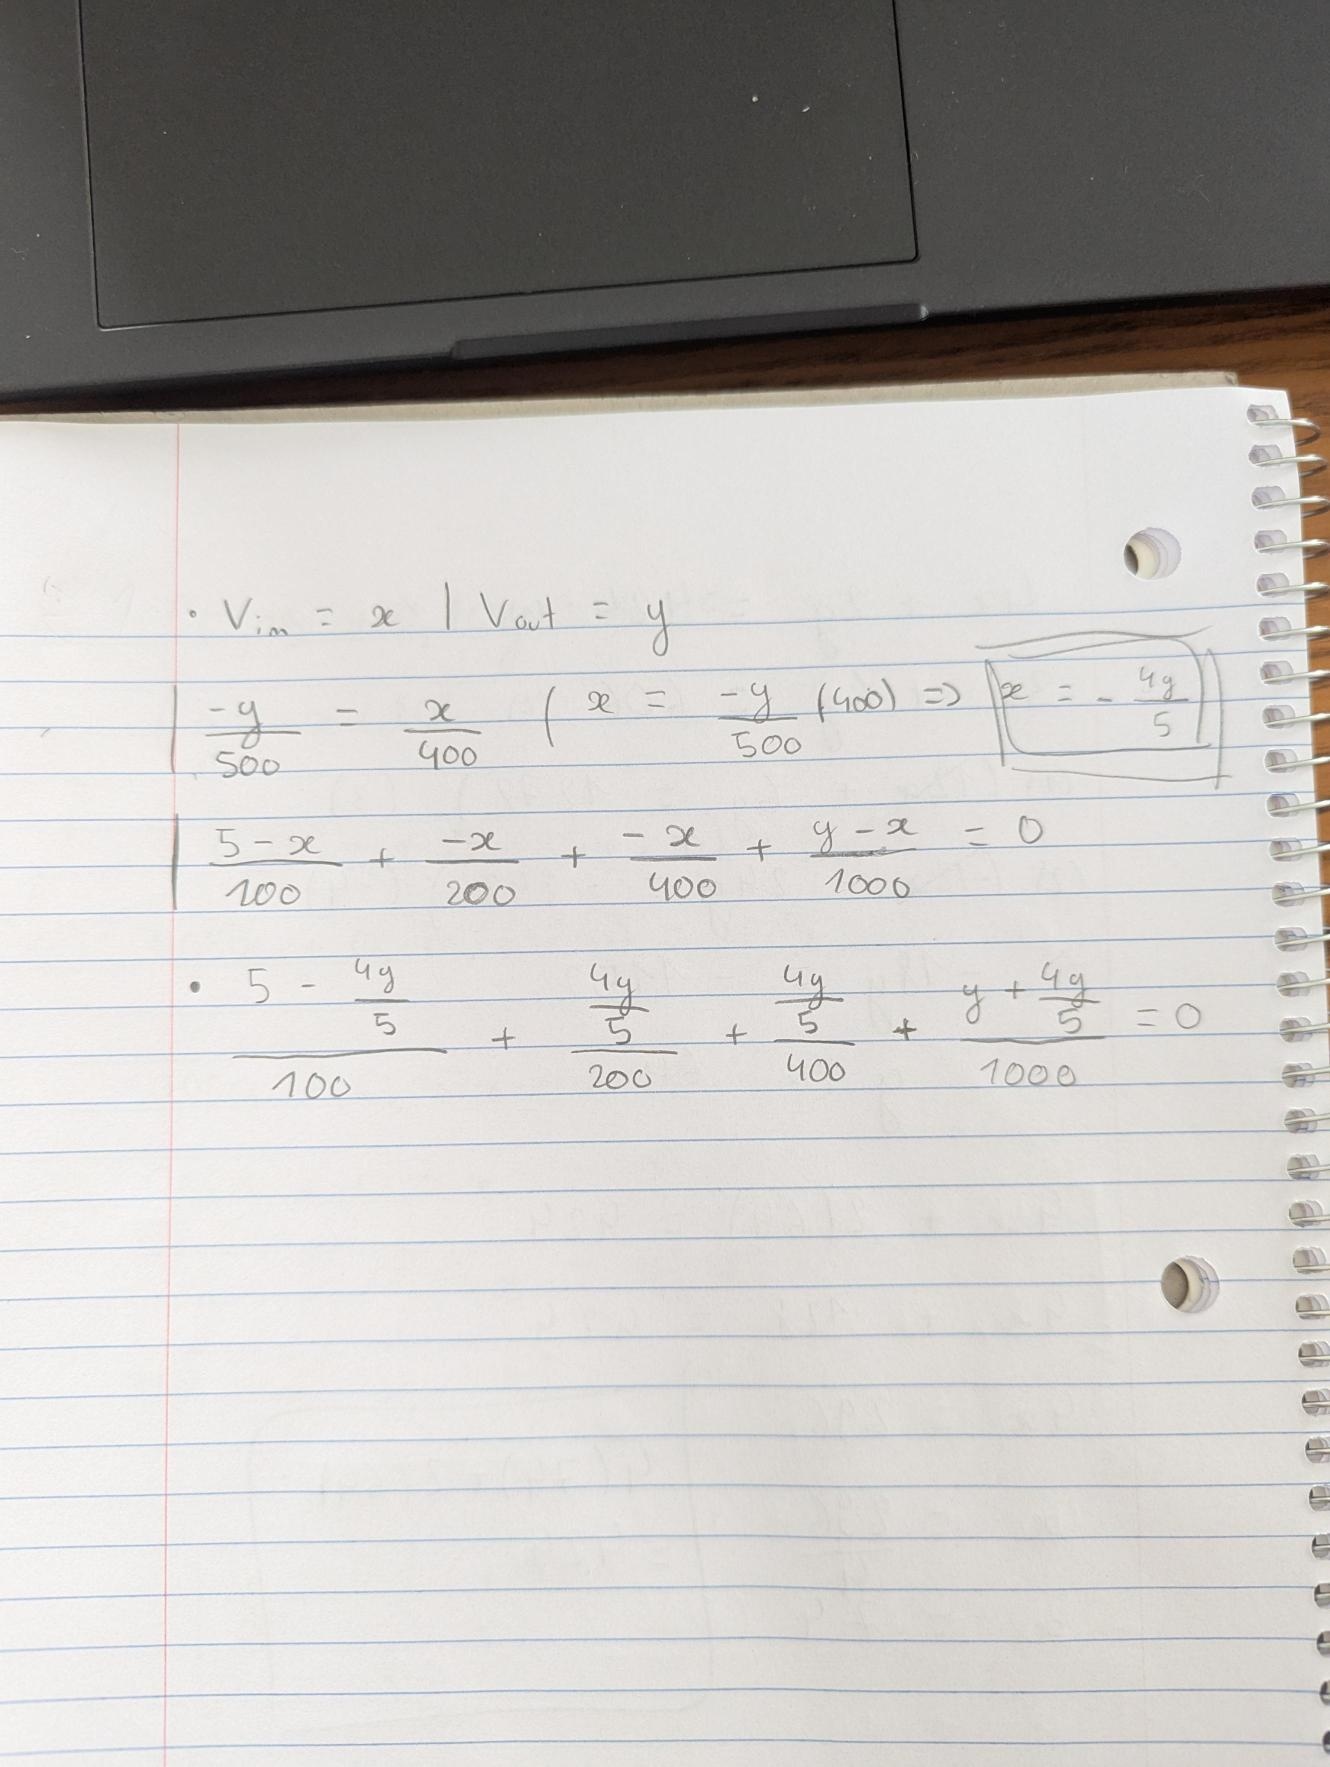 • Vin = x | Vout = y
| -y/500 = x/400 ( x = -y/500 (400) => x = - 4y/5
| 5-x/100 + -x/200 + -x/400 + y-x/1000 = 0
• 5 - 4y/5/100 + 4y/5/200 + 4y/5/400 + y + 4y/5/1000 = 0